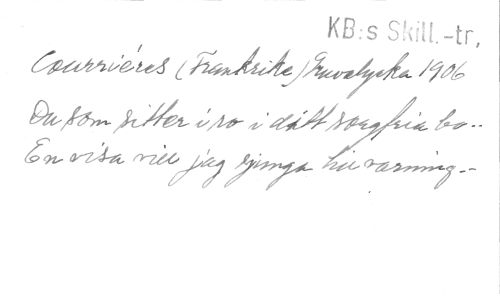 KB:s Skill.-tr,
Courriéres (Frankrike) Gruvolycka 1906
Du som sitter i ro i ditt sorgfria bo..
En visa vill jag sjunga till varning..